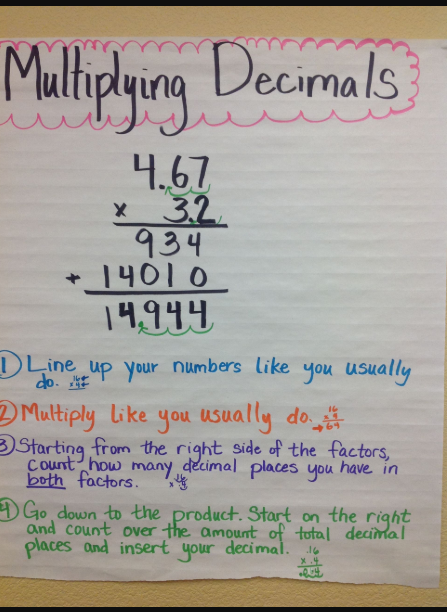 Multiplying Decimals
4.67
x 3.2
934
+ 14010
14.944
① Line up your numbers like you usually
do.
② Multiply like you usually do. 16 x 4 → 64
③ Starting from the right side of the factors,
count how many decimal places you have in
both factors.
④ Go down to the product. Start on the right
and count over the amount of total decimal
places and insert your decimal.
.16
x .4